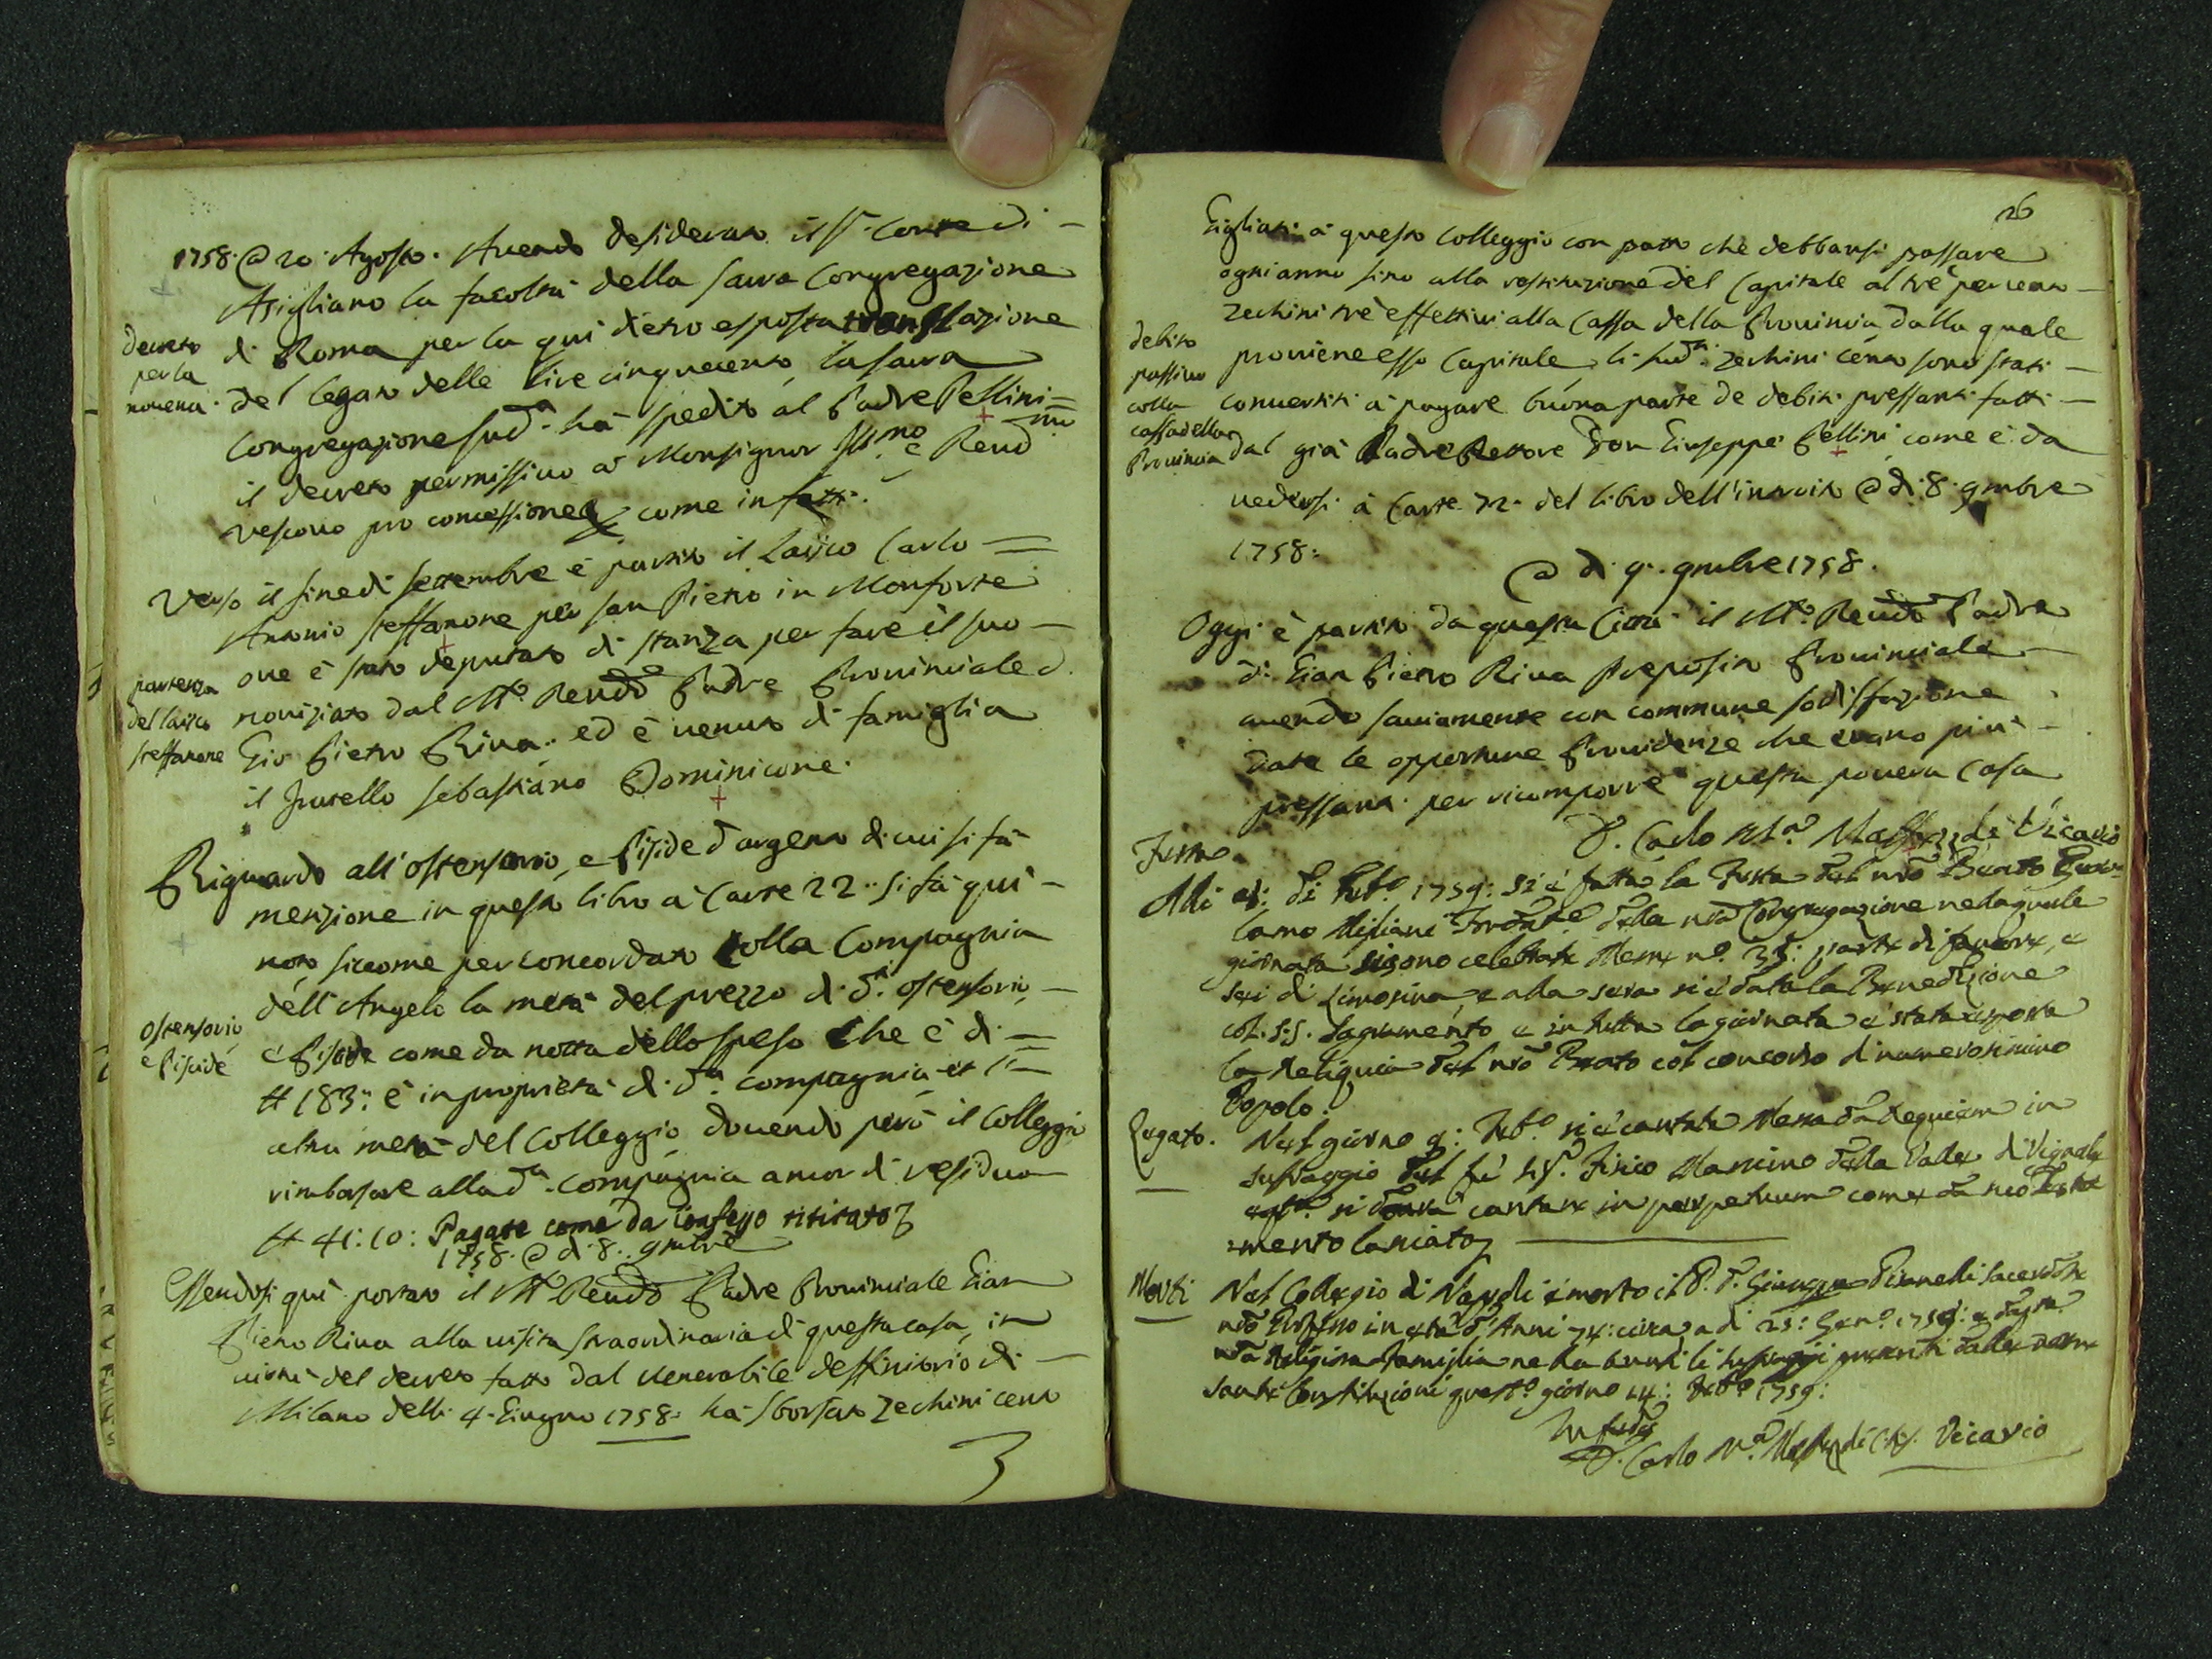 1758. @ 20. Agosto. Avendo desiderato il Sr. Conte di
Asigliano la facoltà della Sacra Congregazione
decreto
per la
novena.
di Roma per la qui dietro esposta translazione
del legato delle lire cinquecento, la sacra
Congregazione sud.a hà spedito al Padre Pellini
il decreto permissivo a Monsignor Ill.mo e Rev.mo
Vescovo pro concessione come in fatti.
Verso il fine di Settembre è partito il Laico Carlo
Antonio Steffanone per San Pietro in Monforte
partenza
del laico
Steffanone
ove è stato deputato di stanza per fare il suo
noviziato dal M.to Revdo Padre Provinciale d.
Gio: Pietro Riva: ed è venuto di famiglia
il fratello Sebastiano Dominicone.
Riguardo all'ostensorio, e Piside d'argento di cui si fà
menzione in questo libro à Carte 22. si fà qui
noto siccome per concordato colla Compagnia
dell'Angelo la metà del prezzo di d.o ostensorio,
ostensorio
e Piside
e Piside come da notta dello speso che è di
tt 183: è in proprietà di d.a compagnia et l'
altra metà del Colleggio, dovendo però il Colleggio
rimborsare alla d.a compagnia ancor di residuo
tt 41:10: Pagate come da confesso ritirato
1758. @ di 8. 9mbre
Essendosi quì portato il M.to Revdo Padre Provinciale Gian
Pietro Riva alla visita straordinaria di questa casa, in
virtù del decreto fatto dal Venerabile deffinitorio di
Milano delli 4. Giugno 1758. hà sborsato Zechini cento
26
Gigliati à questo Colleggio con patto che debbansi passare
ogni anno sino alla restituzione del Capitale al tre per cento
Zechini tre effettivi alla Cassa della Provincia, dalla quale
debito
passivo
colla
cassa della
Provincia
proviene esso Capitale, li sud.i Zechini cento sono stati
convertiti à pagare buona parte de debiti pressanti fatti
dal già Padre Rettore Don Giuseppe Pellini come è da
vedersi à Carte 72. del libro dell'introito @ di 8. 9mbre
1758:
@ di 9. 9mbre 1758.
Oggi è partito da questa Città il M.to Revdo Padre
d. Gian Pietro Riva Preposito Provinciale
avendo saviamente con commune sodisfazione
date le opportune Providenze che erano più
pressanti per ricomporre questa povera Casa
D. Carlo M.a Maffezzoli Vicario
Festa
Alli 8: di Feb.o 1759: si è fatta la Festa del nro Beato Giro=
lamo Miliani Fondat.e della nra Congregazione nella quale
giornata si sono celebrate Messe n.o 35: parte di favore, e
sei di Limosina, e alla sera si è data la Benedizione
col S.S. Sagramento e in tutta la giornata è stata esposta
la Reliquia del nro Beato col concorso di numerosissimo
Popolo:
Legato.
Nel giorno 9: Feb.o si è cantata Messa da Requiem in
suffraggio del fù Sig.r Fisico Mancino della Valle di Vignale
si dovrà cantare in perpetuum come da suo Testa
=mento lasciato
Morti
Nel Collegio di Napoli è morto il P. D. Giuseppe Pianelli Sacerdote
nro Professo in età d'Anni 74: circa, a di 25: Gen.o 1759: e da questa
nra Religiosa Famiglia ne ha avuti li suffraggi prescritti dalle nostre
Sante Constituzioni quest.o giorno 14: Feb.o 1759:
In fede
D. Carlo M.a Maffezzoli C.R.S. Vicario